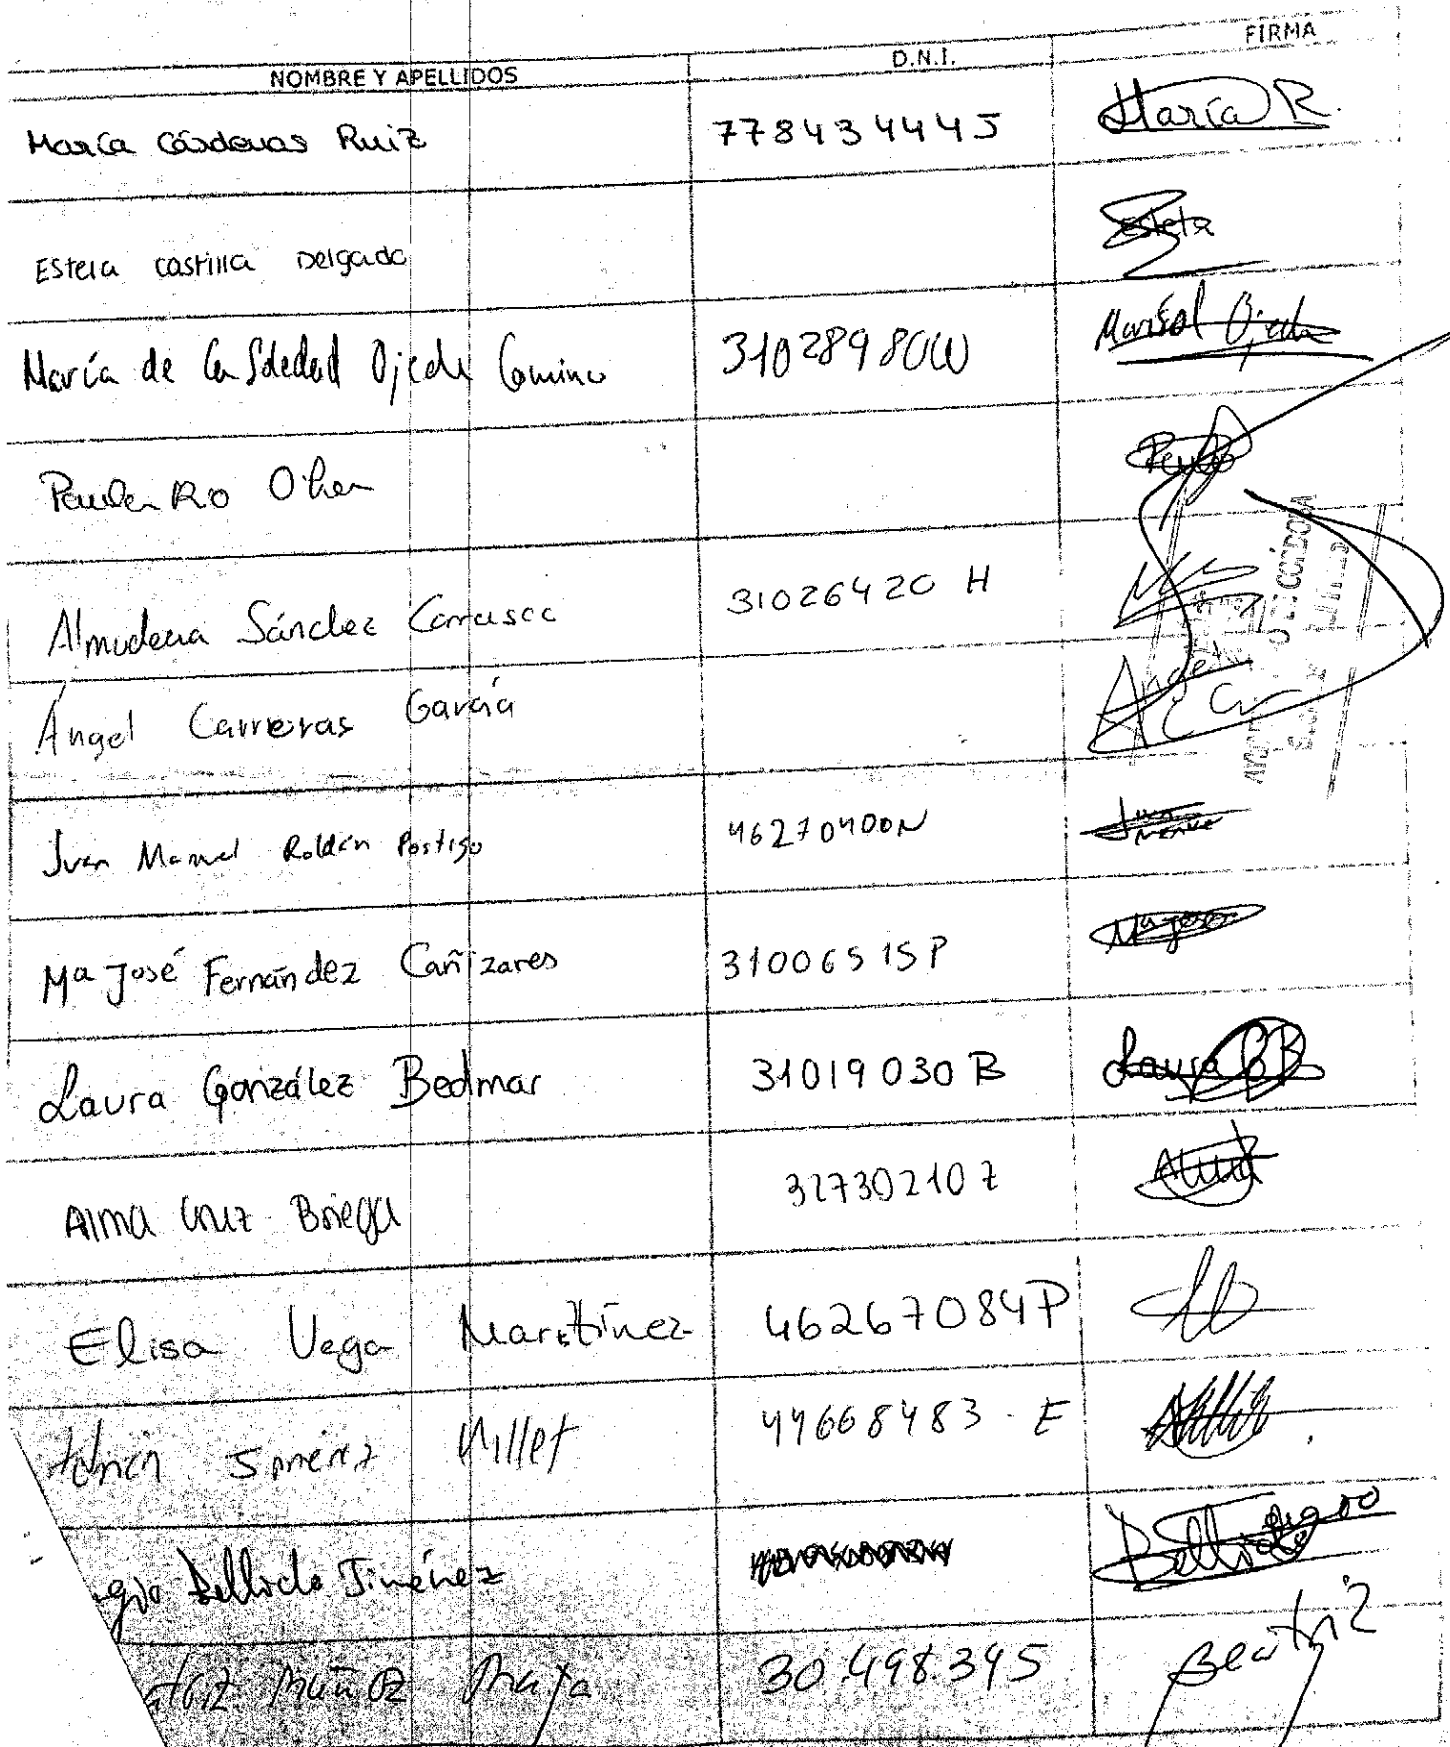 NOMBRE Y APELLIDOS D.N.I. FIRMA
María Cárdenas Ruiz 77843444J María R.
Estela Castilla Delgado Estela
María de la Soledad Ojeda Camino 31028980W Marisol Ojeda
Paula
Almudena Sánchez Carrasco 31026420 H
Ángel Carreras García Angel C
Juan Manuel Roldán Postigo 46270400N Juan Manuel
Mª José Fernández Cañizares 31006515P Mª José
Laura González Bedmar 31019030 B Laura GB
Alma Cruz Briega 32730210 Z Alma
Elisa Vega Martínez 46267084P
Millet 44668483-E
gio Bellido Jiménez Bellido
atriz Muñoz 30.498.345 Beatriz